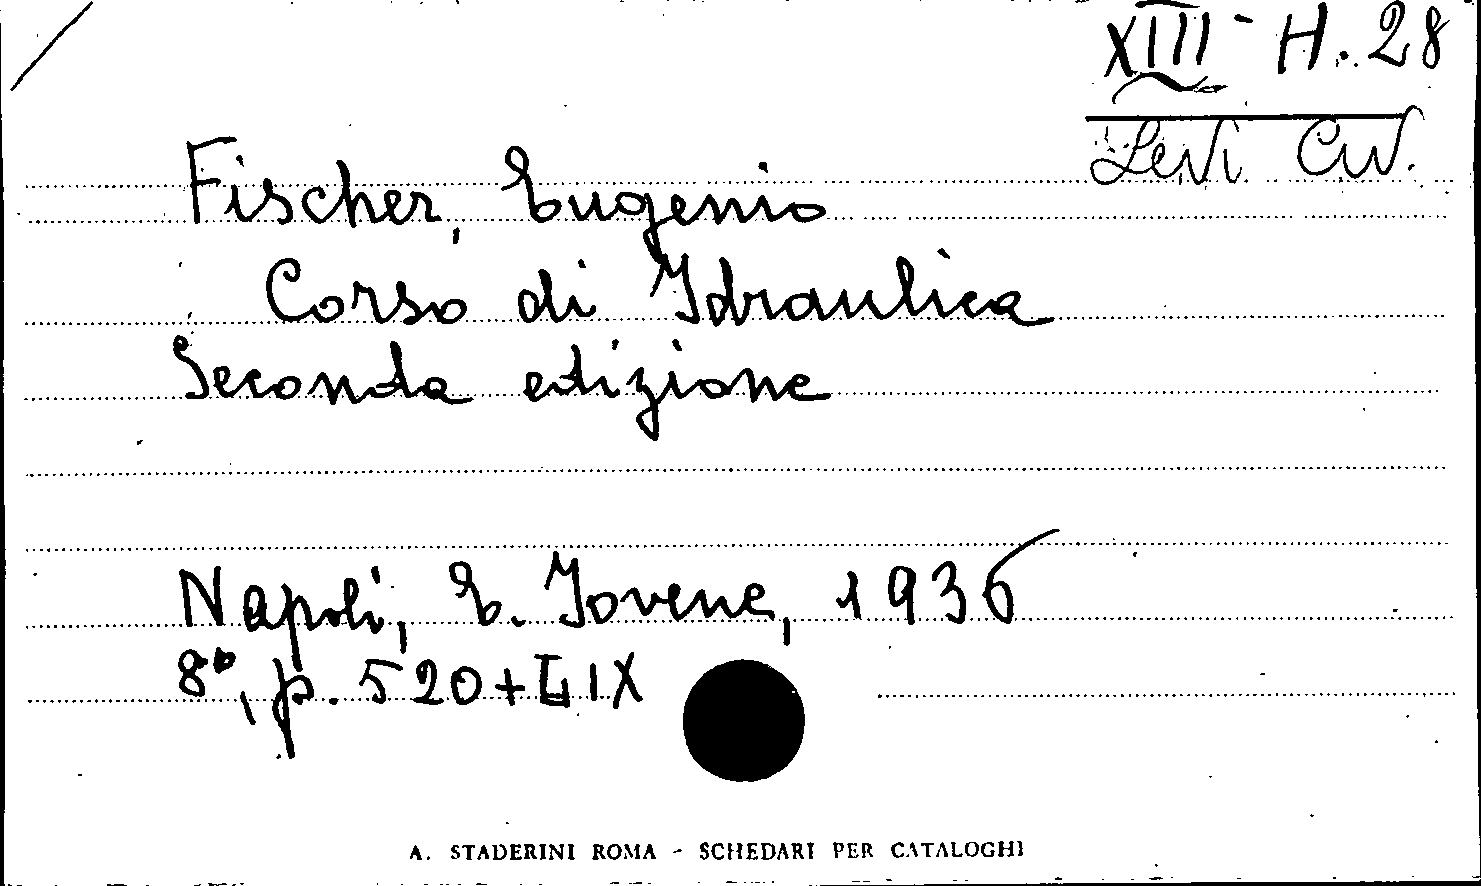 XIII - H. 28
Levi Civ.
Fischer, Eugenio
Corso di Idraulica
Seconda edizione
Napoli, E. Jovene, 1936
8°, p. 520 + LIX
A. STADERINI ROMA - SCHEDARI PER CATALOGHI